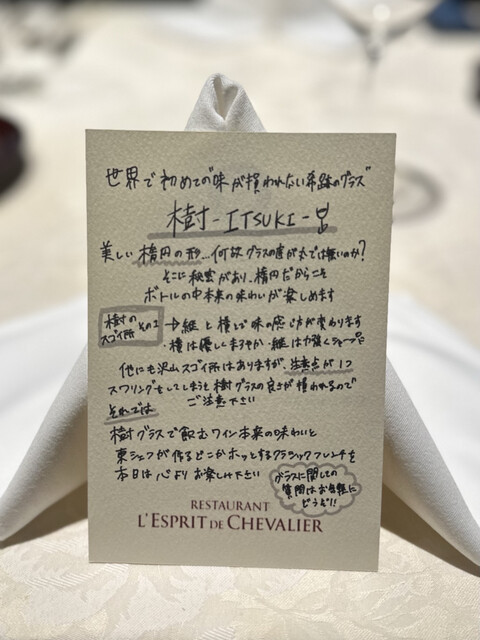 世界で初めての"味が損われない奇跡のグラス"
樹-ITSUKI-
美しい楕円の形…何故グラスの底が丸では無いのか?
そこに秘密があり、楕円だからこそ
ボトルの中本来の味わいが楽しめます
樹の
スゴイ所
その1
→縦と横とで味の感じ方が変わります
・横は優しくまろやか・縦は力強くシャープに
他にも沢山スゴイ所はありますが、注意点が1つ
スワリングをしてしまうと樹グラスの良さが損われるので
ご注意下さい
それでは
樹グラスで飲むワイン本来の味わいと
東シェフが作るどこかホッとするクラシックフレンチを
本日は心よりお楽しみ下さい
グラスに関しての
質問はお気軽に
どうぞ!!
RESTAURANT
L'ESPRIT DE CHEVALIER